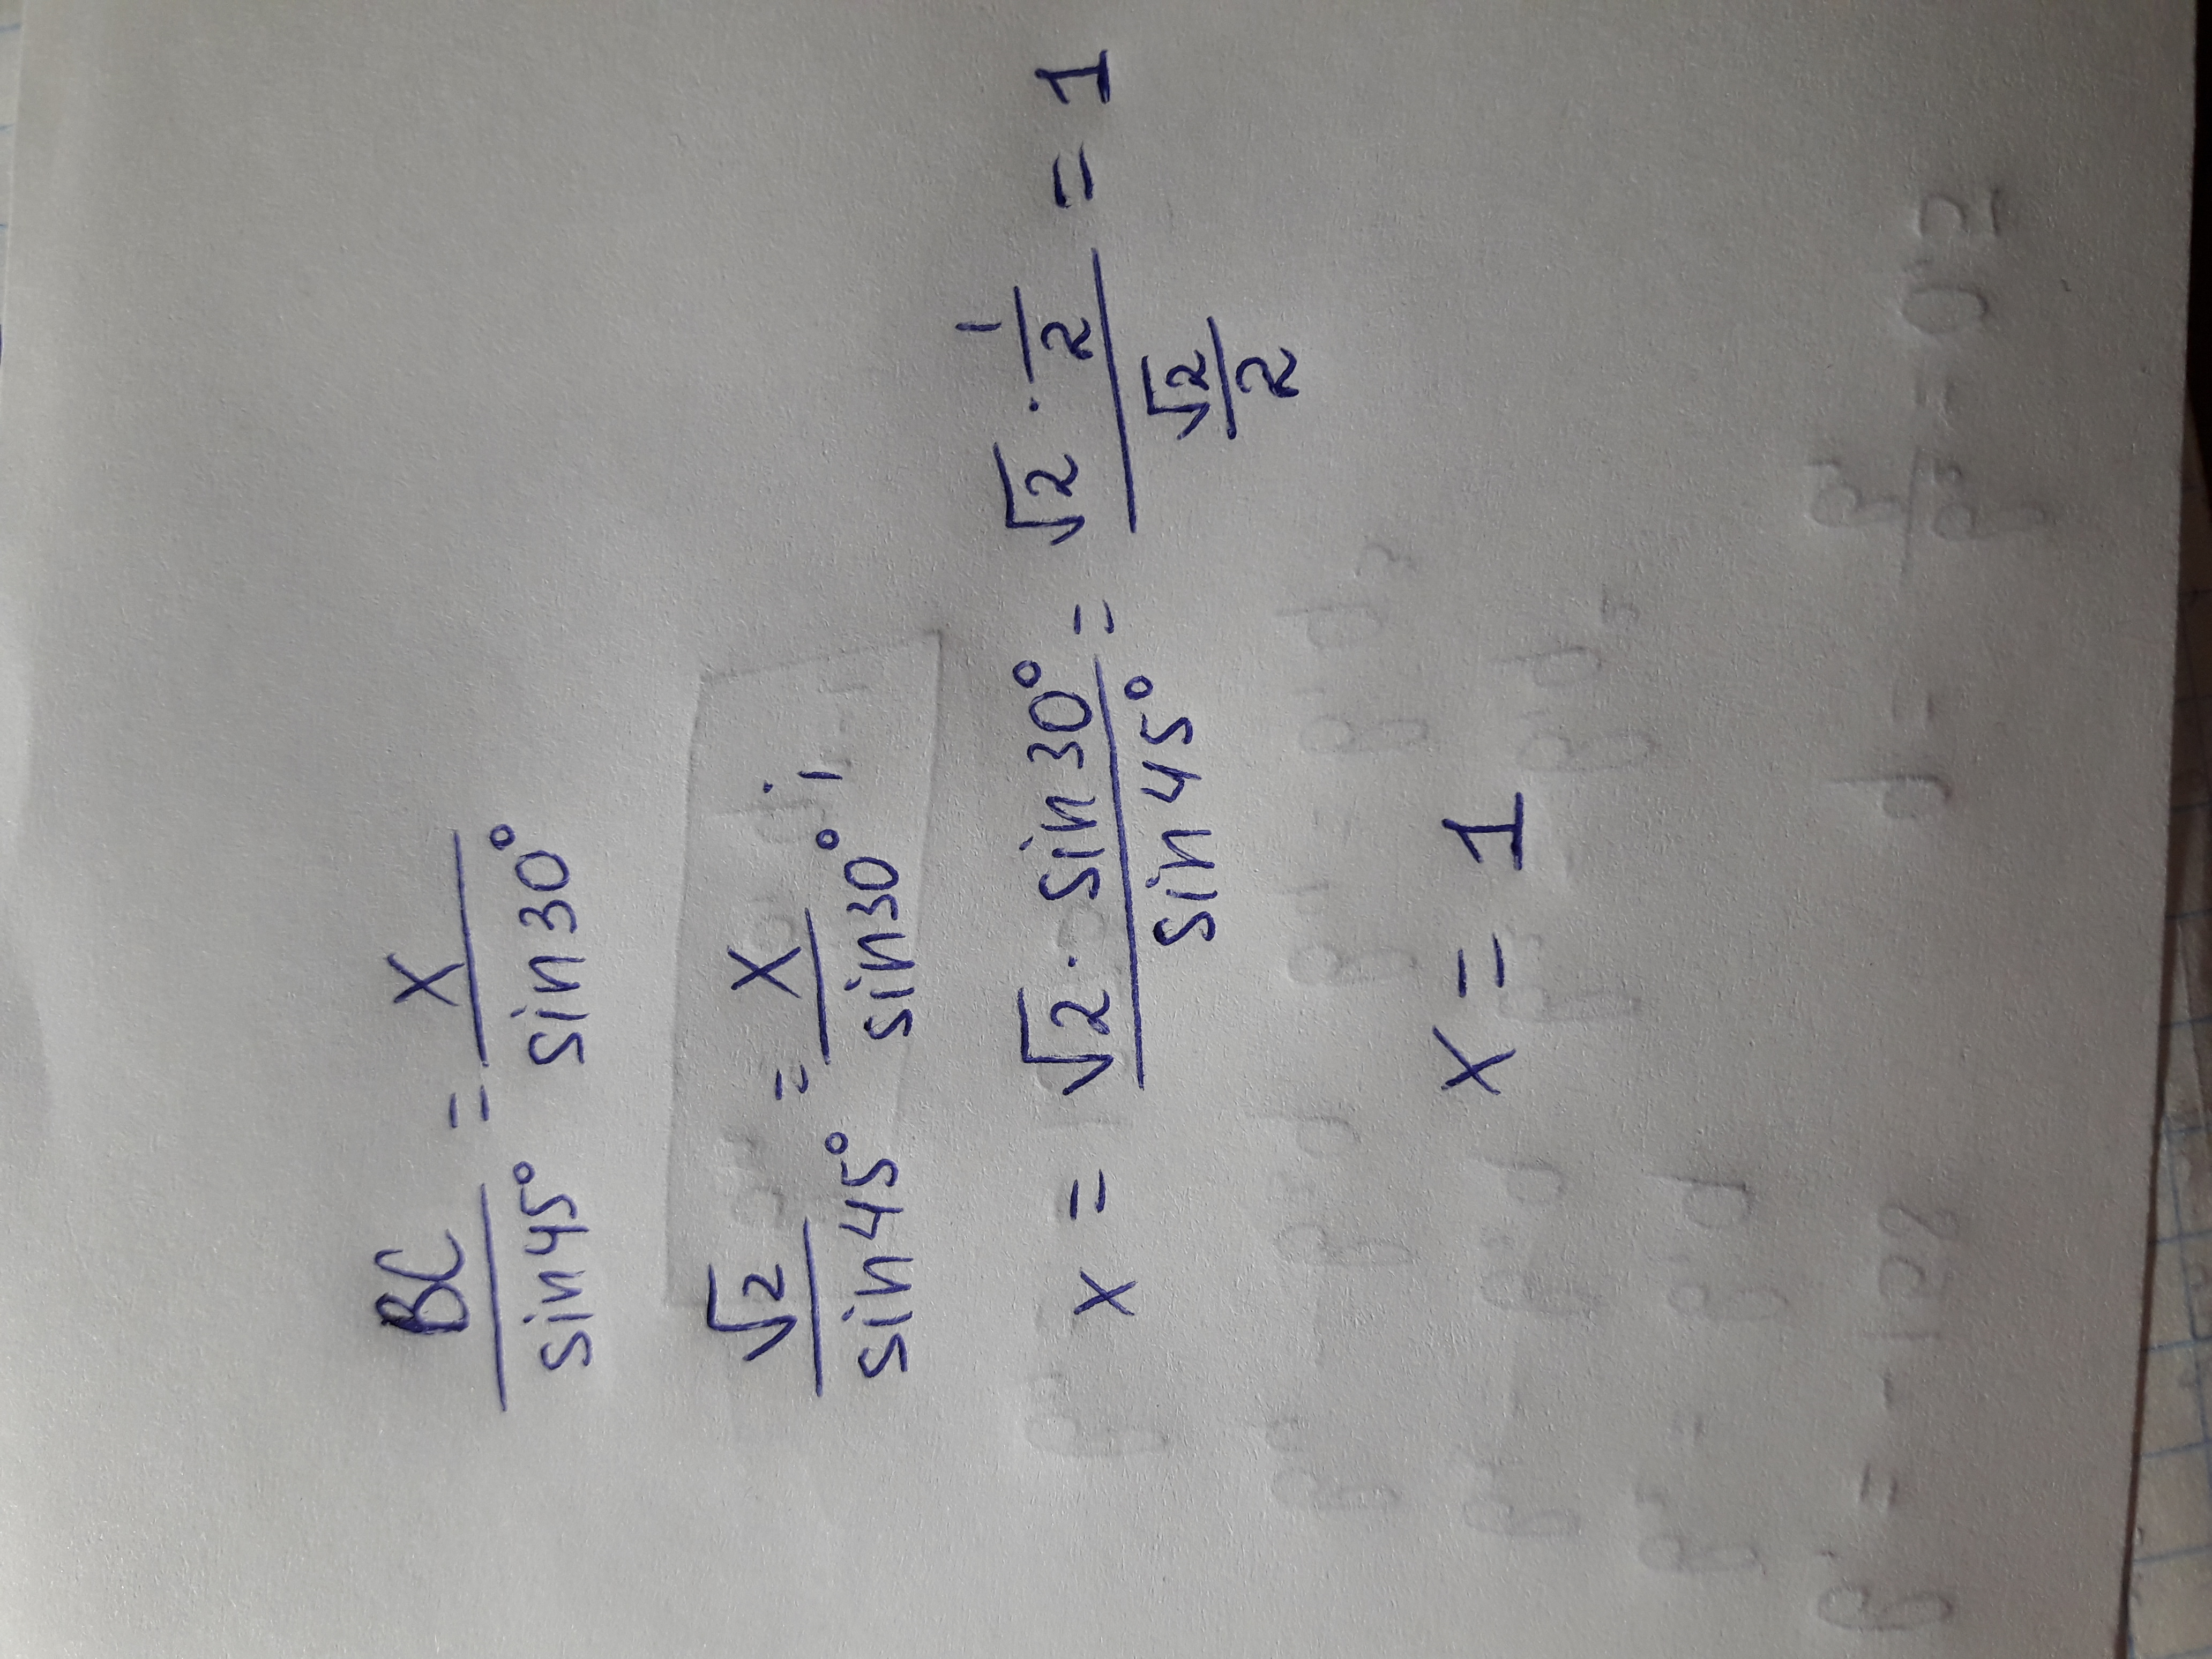 BC/sin45° = x/sin30°
√2/sin45° = x/sin30°
x = √2 · sin30°/sin45° = √2 · 1/2 / √2/2 = 1
x = 1